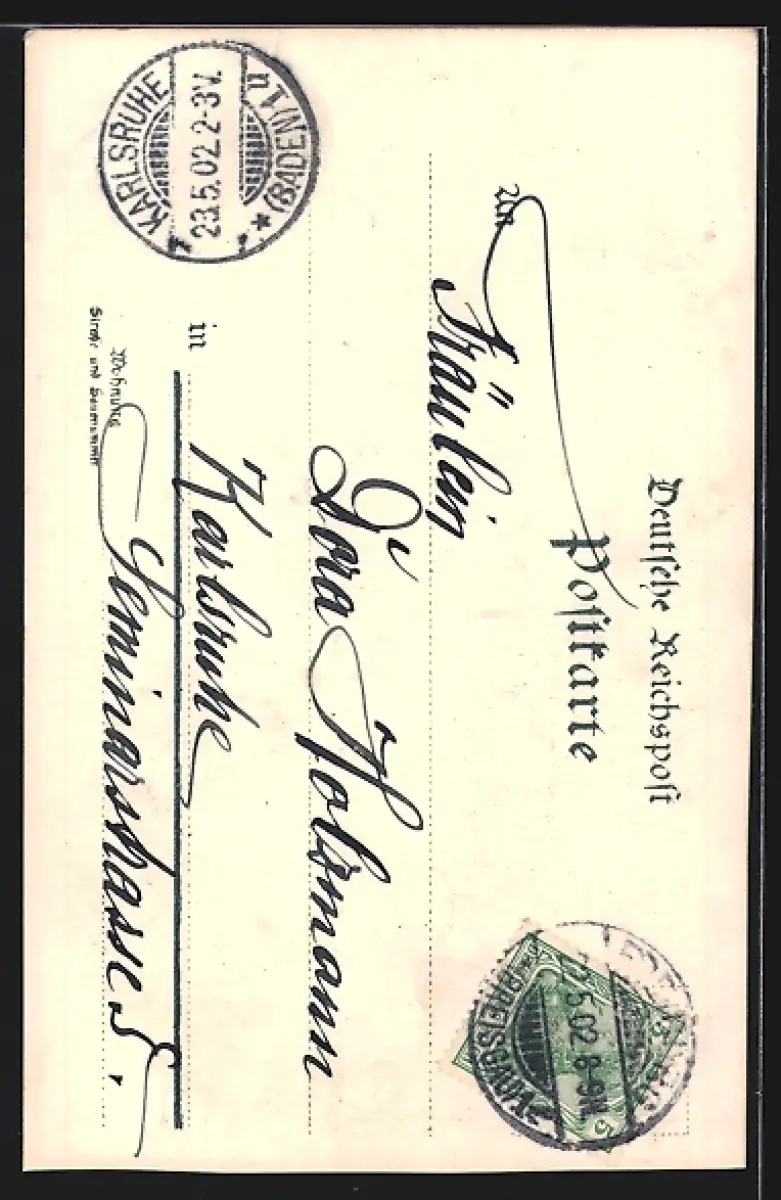 Deutsche Reichspost
Postkarte
An
Fräulein
Dora Holzmann
in
Karlsruhe
Wohnung
Straße und Hausnummer
Seminarstrasse 5.
KARLSRUHE
23.5.02.2-3V.
(BADEN) 1 u
*
5.02.8-9N.
BREISGAU
5